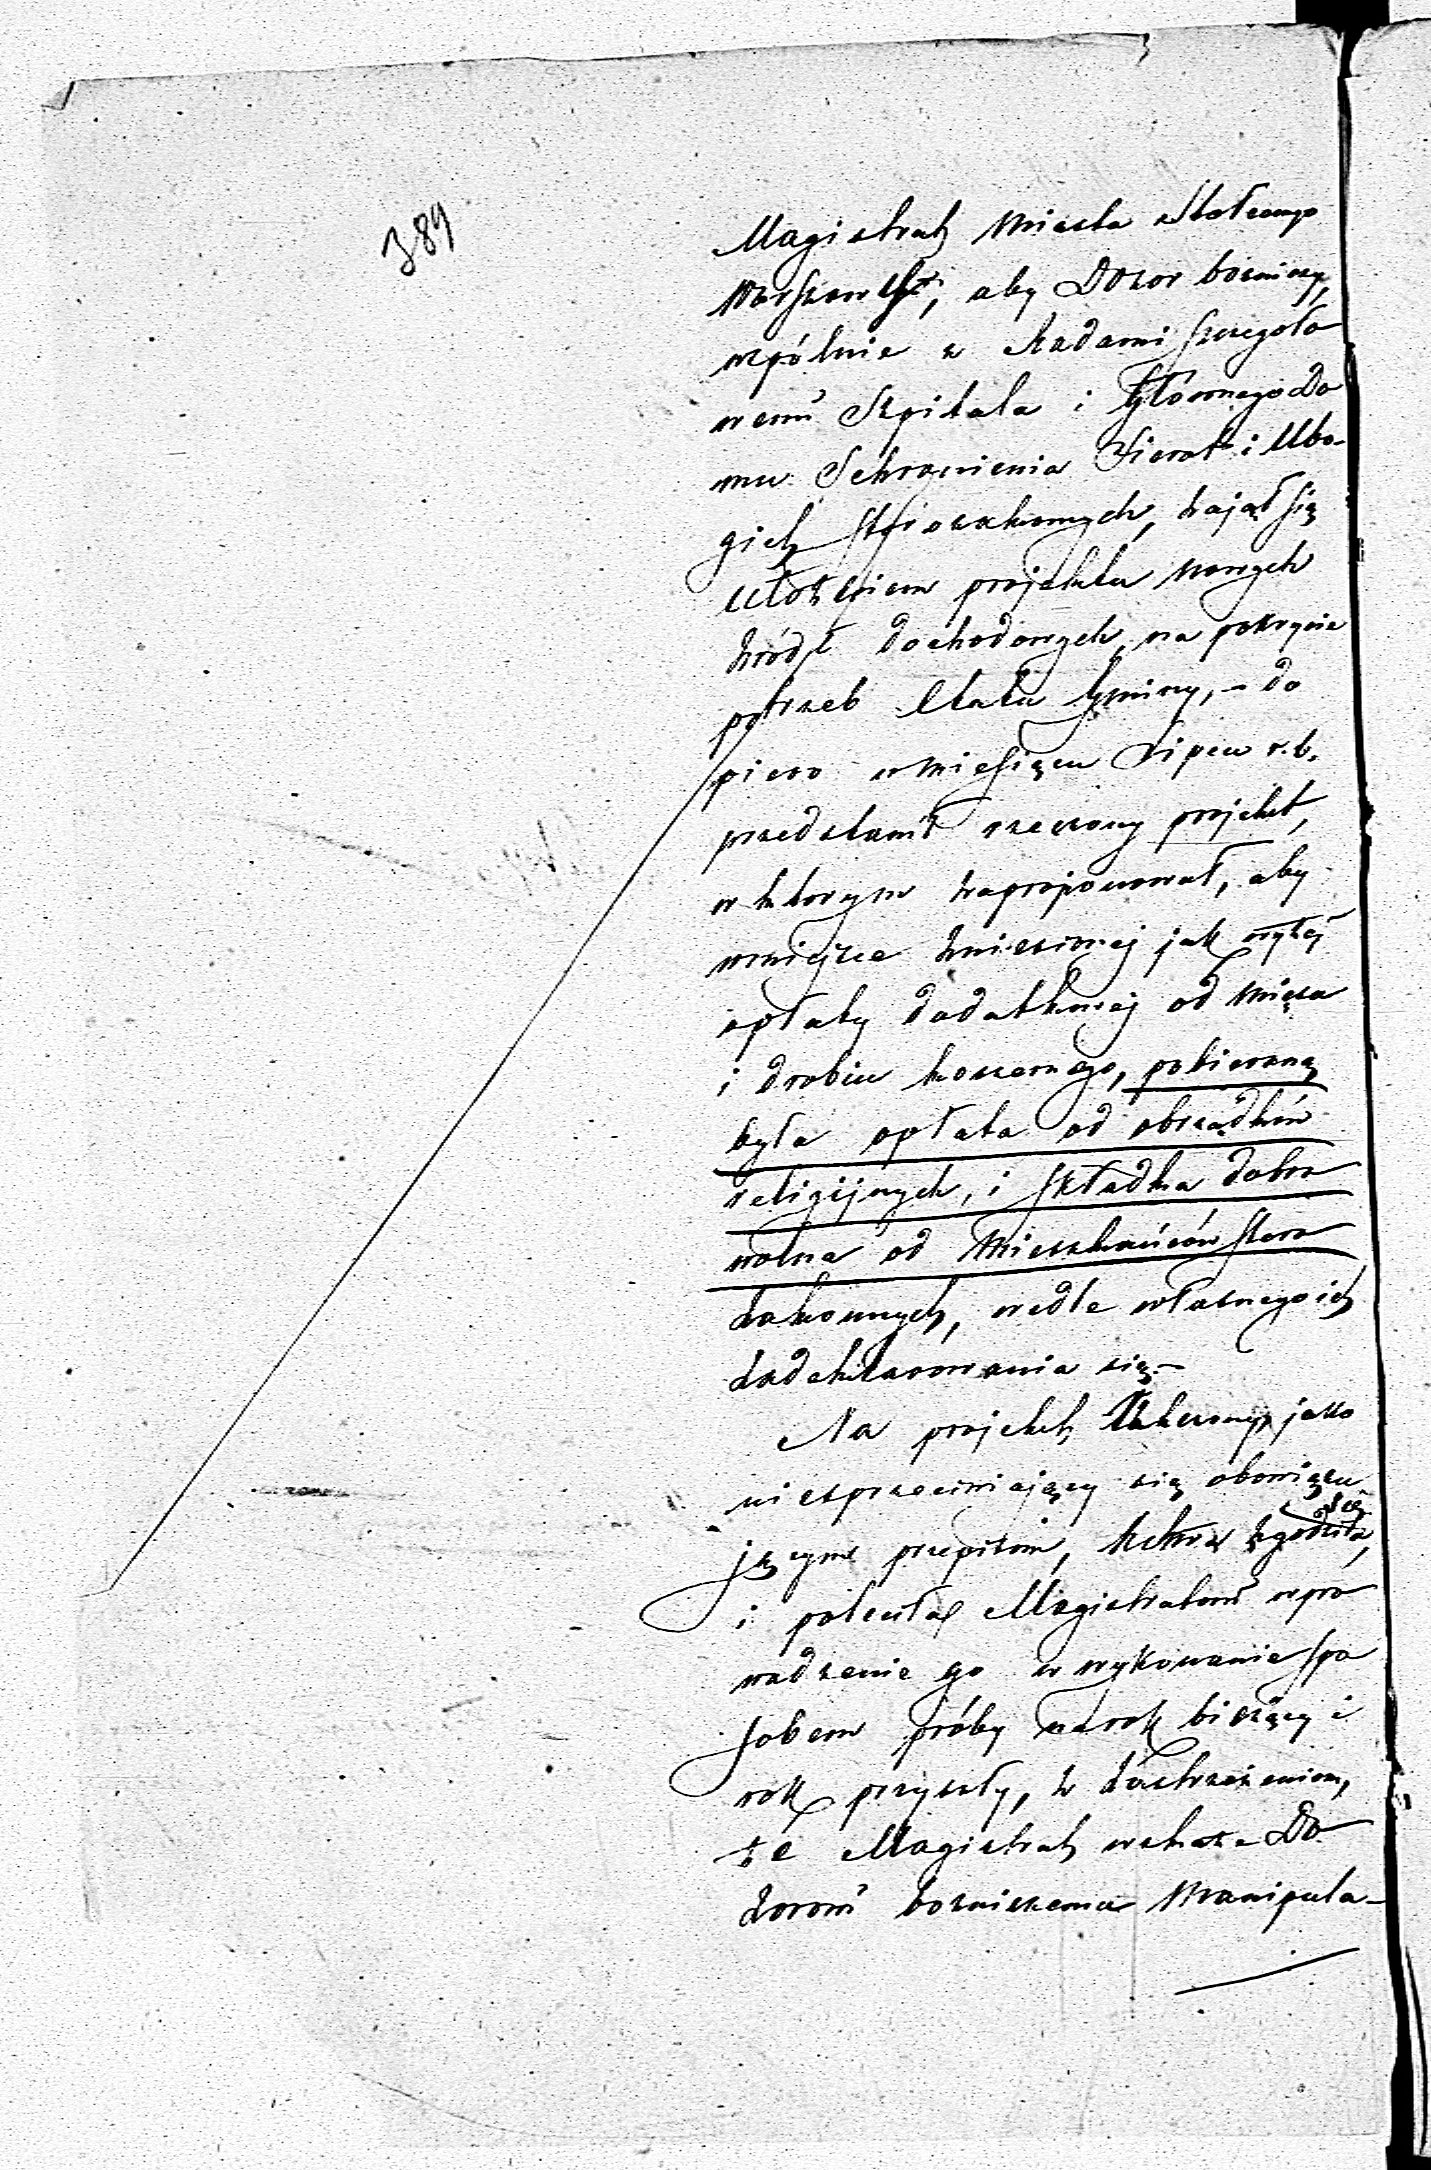 389
Magistrat Miasta Stołecznego
Warszawy, aby Dozor bożniczy,
wspólnie z Radami Szczegóło
wemi Szpitala i Głównego Do
mu Schronienia Sierot i Ubo-
gich Starozakonnych, zajął się
ułożeniem projektu nowych
źródeł dochodowych, na pokrycie
potrzeb Etatu Gminy, – do
piero w miesiącu Lipcu r.b.
przedstawił rzeczony projekt,
w którym zaproponował, aby
w miejsce zniesionej jak wyżej
opłaty dodatkowej od mięsa
i drobiu koszernego, pobieraną
była opłata od obrządków
religijnych, i składka dobro
wolna od Mieszkańców Staro
zakonnych, wedle własnego ich
zadeklarowania się. –
Na projekt jako
niesprzeciwiający się obowiązu-
jącym przepisom, zgodziła
się
i poleciła Magistratowi wpro
wadzenie go w wykonanie spo
sobem próby na rok bieżący i
rok przyszły, z zastrzeżeniem,
że Magistrat wskaże Do
zorowi bożniczemu Manipula-